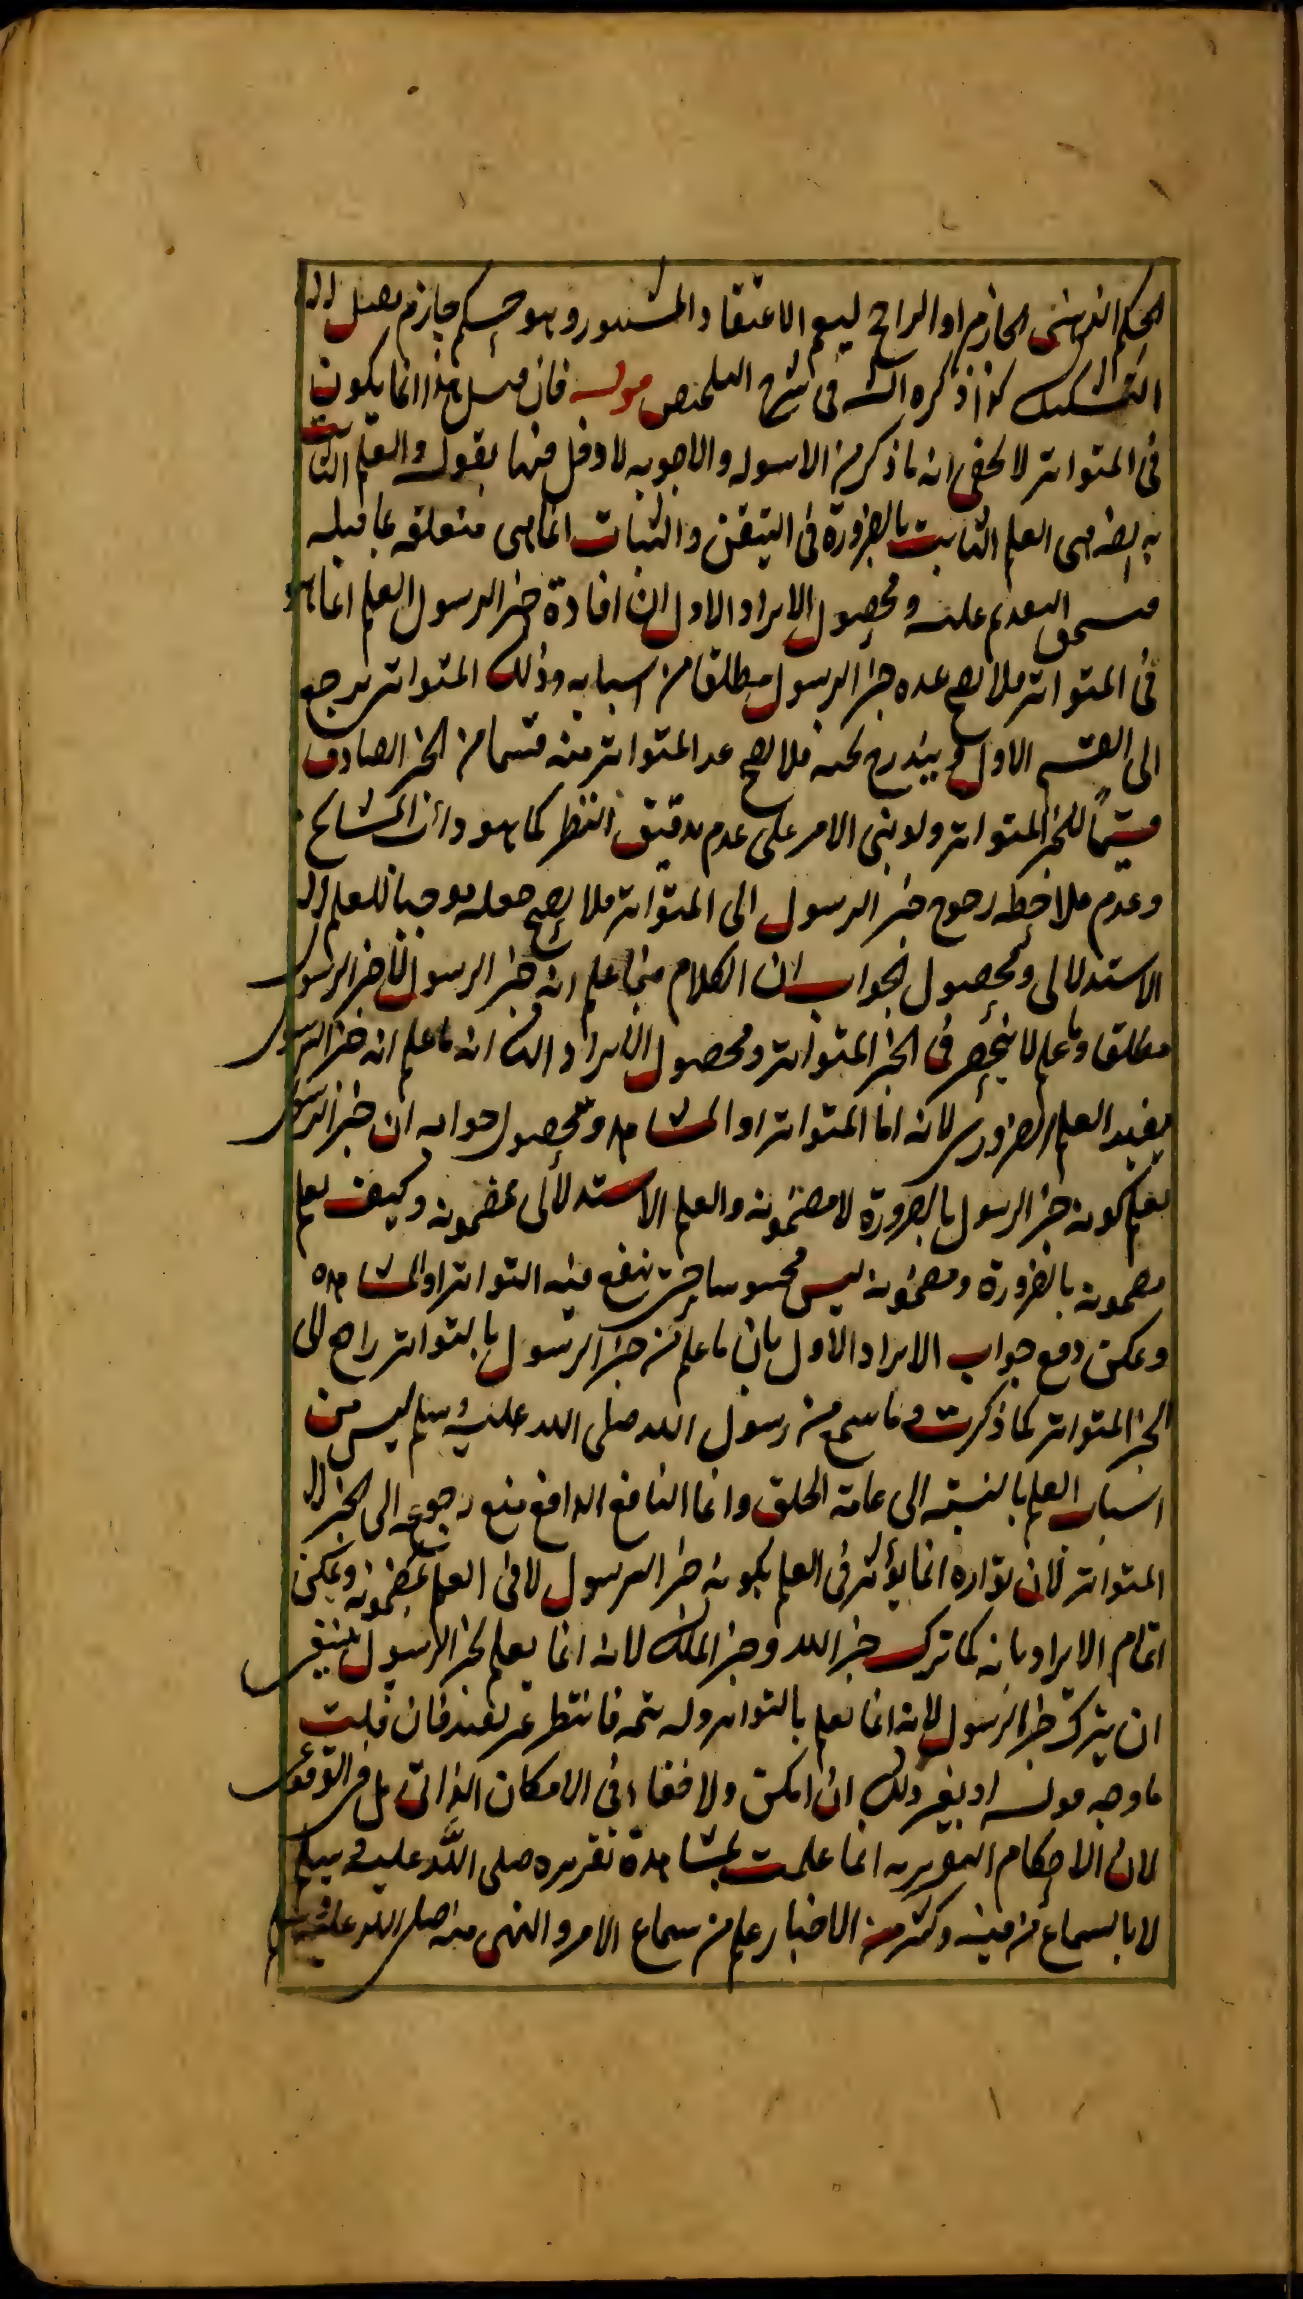 الحكم الذهني الجازم او الراجح ليعم الاعتقاد المشهور وهو حكم جازم يقبل
التشكيك كذا ذكره الشه في شرح التلخيص قوله فان قيل هذا انما يكون
في المتواتر لا يخفى انه ما ذكر من الاسوله والاجوبه لا دخل فيها بقوله والعلم الثابت
به يضاهى العلم الثابت بالضرورة في التيقن والثبات انما هى متعلقه بما قبله
فيستحق التقديم عليه ومحصول الايراد الاول ان افادة خبر الرسول العلم انما هو
في المتواتر فلا يصح عده خبر الرسول مطلقا من اسبابه وذلك المتواتر يرجع
الى القسم الاول ويندرج تحته فلا يصح عد المتواتر منه قسما من الخبر الصادق
قسيما للخبر المتواتر ولو بنى الامر على عدم تدقيق النظر كما هو داب المشايخ
وعدم ملاحظه رجوع خبر الرسول الى المتواتر فلا يصح جعله موجبا للعلم
الاستدلالى ومحصول الجواب ان الكلام فيما علم انه خبر الرسول لا خبر الرسول
مطلقا وما علم لا ينحصر في الخبر المتواتر ومحصول الايراد الثانى انه ما علم انه خبر الرسول
يفيد العلم الضرورى لانه اما المتواتر او المشاهد ومحصول جوابه ان خبر الرسول
يعلم كونه خبر الرسول بالضرورة لا مضمونه والعلم الاستدلالى بمضمونه وكيف يعلم
مضمونه بالضرورة ومضمونه ليس محسوسا حتى ينفع فيه التواتر او المشاهده
ويمكن دفع جواب الايراد الاول بان ما علم من خبر الرسول بالتواتر راجع الى
الخبر المتواتر كما ذكرت وما سمع من رسول الله صلى الله عليه وسلم ليس من
اسباب العلم بالنسبة الى عامة الخلق وانما النافع الدافع منع رجوعه الى الخبر
المتواتر لان تواتره انما يؤثر في العلم بكونه خبر الرسول لا في العلم بمضمونه ويمكن
اتمام الايراد بانه كما ترك خبر الله وخبر الملك لانه انما يعلم بخبر الرسول ينبغى
ان يترك خبر الرسول لانه انما يعلم بالتواتر وله تتمه فانتظر غير بعيد فان قلت
ما وجه قوله او بغير ذلك ان امكن ولا خفاء في الامكان الذاتى بل في الوقوعى
لان الاحكام التقريريه انما علمت بمشاهدة تقريره صلى الله عليه وسلم
لا بالسماع من فيه وكثير من الاخبار علم من سماع الامر والنهى منه صلى الله عليه وسلم